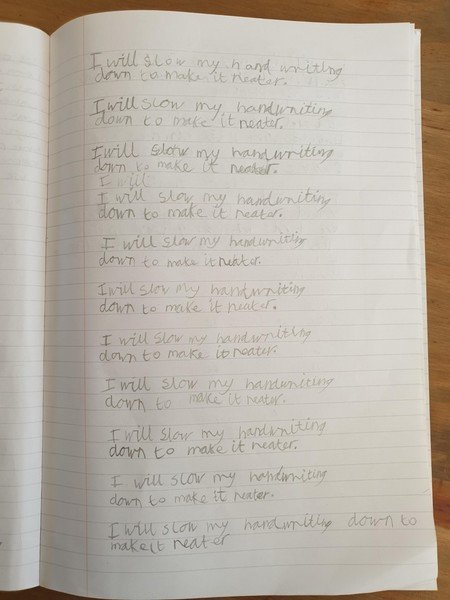 I will slow my hand writing
down to make it neater.
I will slow my handwriting
down to make it neater.
I will slow my handwriting
down to make it neater.
I will
I will slow my handwriting
down to make it neater.
I will slow my handwriting
down to make it neater.
I will slow my handwriting
down to make it neater.
I will slow my handwriting
down to make it neater.
I will slow my handwriting
down to make it neater.
I will slow my handwriting
down to make it neater.
I will slow my handwriting
down to make it neater.
I will slow my handwriting down to
make it neater